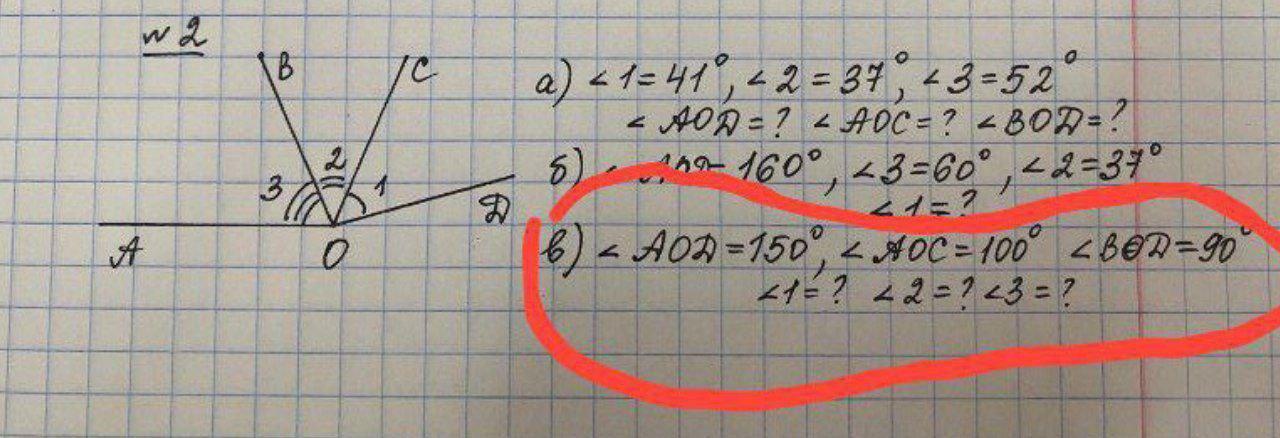 № 2
B
C
3
2
1
Д
A
O
а) ∠1=41°, ∠2=37°, ∠3=52°
∠AOД=? ∠AOC=? ∠BOД=?
б) 160°, ∠3=60°, ∠2=37°
∠1=?
в) ∠AOД=150°, ∠AOC=100° ∠BOД=90°
∠1=? ∠2=? ∠3=?